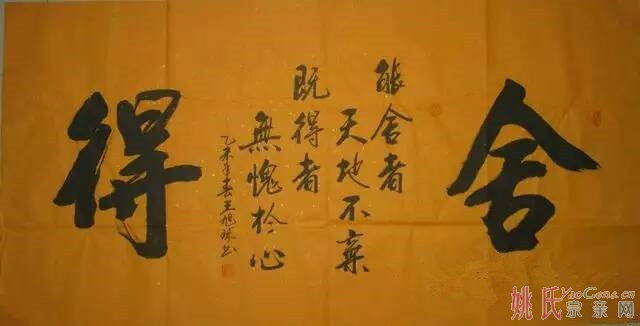 舍
能舍者
天地不棄
既得者
無愧於心
乙未年春王旭球书
得
姚氏宗亲网
YaoGens.cn